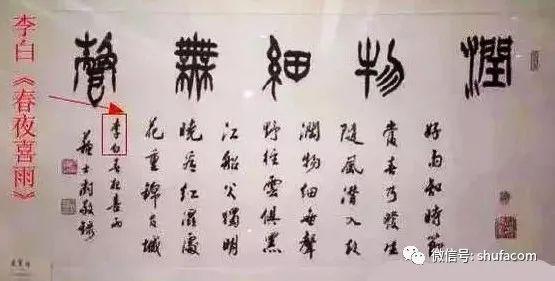 潤物細無聲
好雨知時節
當春乃發生
隨風潛入夜
潤物細無聲
野徑雲俱黑
江船火獨明
曉看紅濕處
花重錦官城
李白春夜喜雨
蘇士澍敬錄
李白《春夜喜雨》
微信号: shufacom